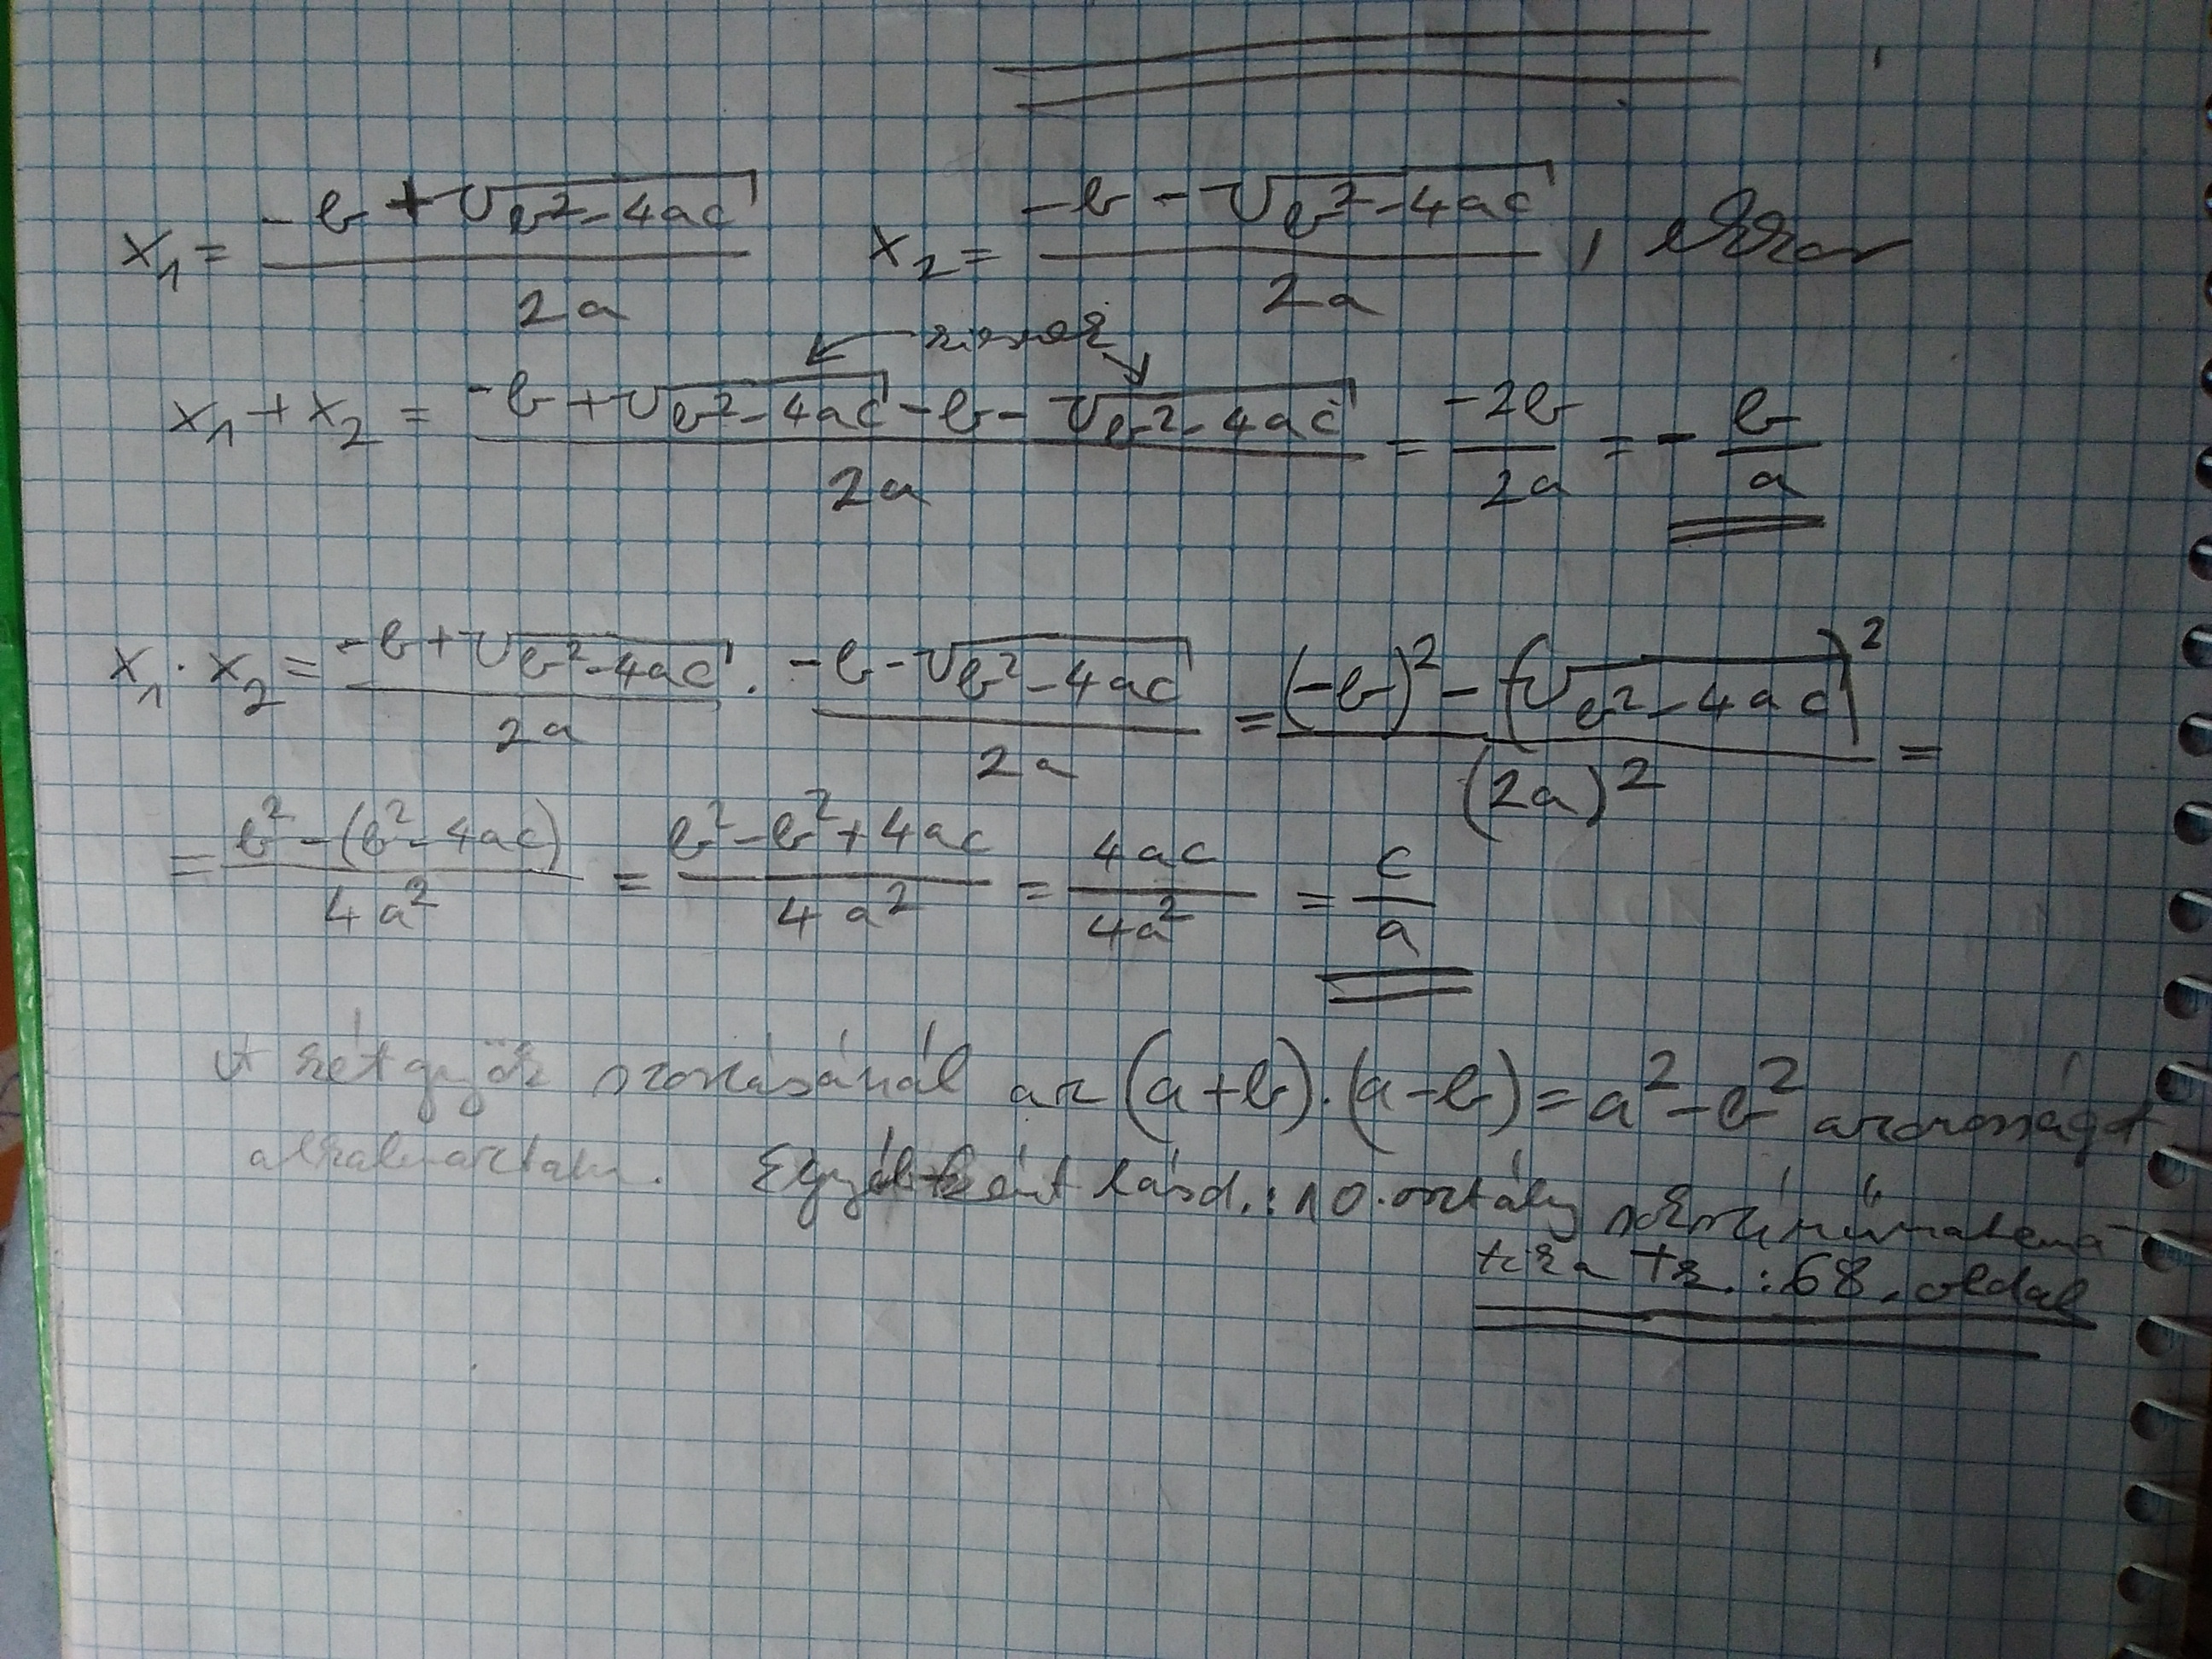 x₁ = (-b + √(b²-4ac)) / 2a x₂ = (-b - √(b²-4ac)) / 2a , ekkor
kiesek
x₁ + x₂ = (-b + √(b²-4ac) - b - √(b²-4ac)) / 2a = -2b / 2a = - b / a
x₁ · x₂ = (-b + √(b²-4ac)) / 2a · (-b - √(b²-4ac)) / 2a = ((-b)² - (√(b²-4ac))²) / (2a)² =
= (b² - (b²-4ac)) / 4a² = (b² - b² + 4ac) / 4a² = 4ac / 4a² = c / a
A két gyök szorzásánál az (a+b)·(a-b) = a² - b² azonosságot
alkalmaztam. Egyébként lásd.: 10. osztály sokszínű matema-
tika tk.: 68. oldal